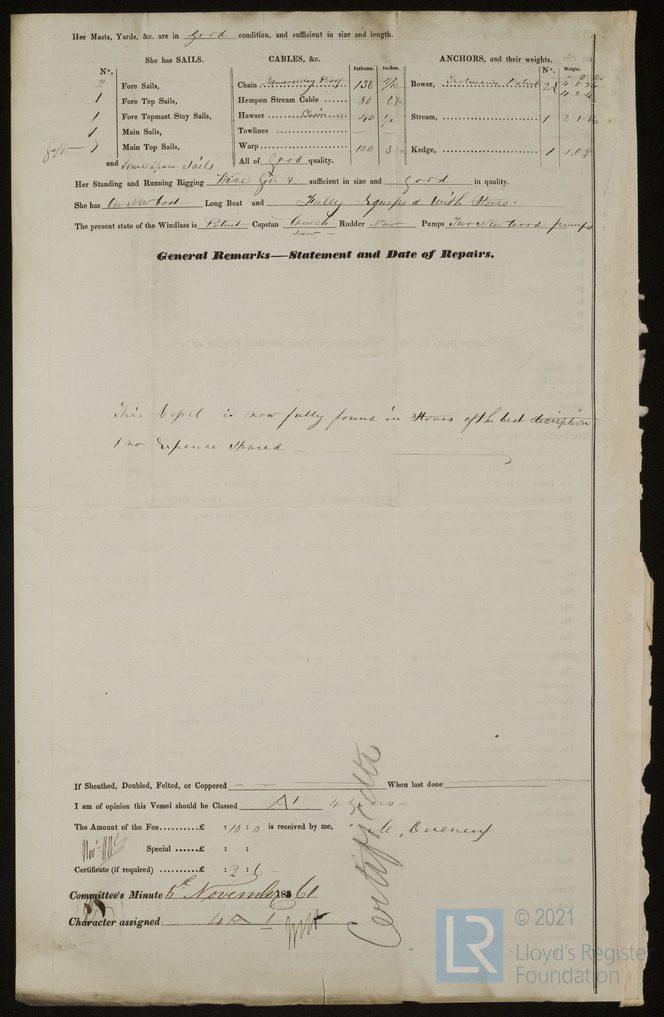 Her Masts, Yards, &c. are in good condition, and sufficient in size and length.
She has SAILS. CABLES, &c. ANCHORS, and their weights.
Nº. Fathoms. Inches. Nº. Weight.
2 Fore Sails, Chain Proof 130 Bower, Patent 2
1 Fore Top Sails, Hempen Stream Cable 80
1 Fore Topmast Stay Sails, Hawser 40 Stream, 1
1 Main Sails, Towlines
1 Main Top Sails, Warp 100 Kedge, 1
and Sails All of Good quality.
Her Standing and Running Rigging Wire sufficient in size and good in quality.
She has One New boat Long Boat and Fulley Equiped with Stores.
The present state of the Windlass is Patent Capstan Rudder New Pumps Two New wood pumps
General Remarks—Statement and Date of Repairs.
This Vessel is now fully found in Stores of the best description
& no Expence Spared
If Sheathed, Doubled, Felted, or Coppered When last done
I am of opinion this Vessel should be Classed A1 4
The Amount of the Fee £ : 10 : 0 is received by me,
Special £ : :
Certificate (if required) £ : 2 : 6
Committee's Minute 5th November 1861
Character assigned 4 A 1
© 2021
LR
Lloyd's Register
Foundation